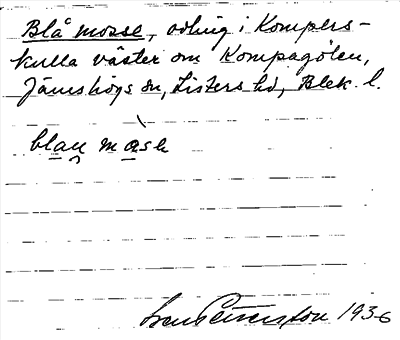 Blå mosse, odling i Kompers-
kulla väster om Kompagölen,
Jämshögs sn, Listers hd, Blek. l.
blau mose
1936